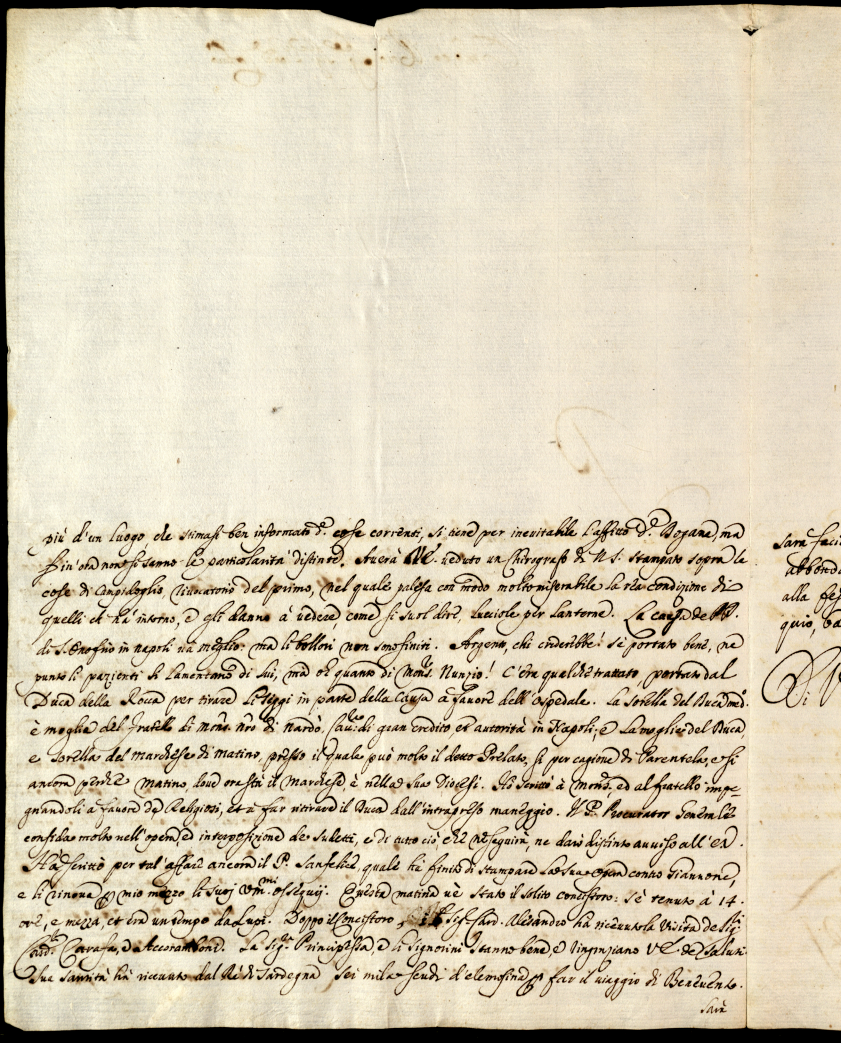 più d'un luogo che stimasi ben informato d.e cose correnti, si tiene per inevitabile l'affitto d.e Dogane, ma
fin'ora non si sanno le particolarità distinte. Averà VE. veduto un Chirografo di N. S. stampato sopra le
cose di Campidoglio, del primo, nel quale palesa con modo molto miserabile la rea condizione di
quelli ch'hà intorno, e gli danno à vedere come si suol dire, lucciole per lanterne. La causa de
di S. Onofrio in napoli và meglio, ma li bollori non sono finiti. Argento, chi crederebbe! s'è portato bene, ne
punto li pazienti si lamentano di lui, ma oh quanto di Mons.r Nunzio! C'era qualche trattato, portato dal
Duca della Roca per tirare li Seggi in parte della Causa à favore dell'ospedale. La sorella del Duca med.o
è moglie del fratello di Mons. nro di Nardò, Cau.re di gran credito et autorità in Napoli, e la moglie del Duca,
e sorella del marchese di Matino, presso il quale può molto il detto Prelato, si per cagione di Parentela, e si
ancora perche Matino, dove ora stà il Marchese, è nella sua Diocesi. Hò scritto à Mons.r, ed al fratello impe-
gnandoli à favore de Religiosi, et à far ritirare il Duca dall'intrapreso maneggio. Il P. Procurator Generale
confida molto nell'opera, e interposizione de sudetti, e di tutto ciò che ne seguirà, ne darò distinto avviso all'EV.
Hà scritto per tal'affare ancora il P. Sanfelice, quale hà finito di stampare la sua opera contro Giannone,
e li rinova p mio mezzo li suoi Um.mi ossequij. Questa matina v'è stato il solito concistoro. S'è tenuto à 14.
ore, e mezza, et era un tempo da Lupi. Doppo il Concistoro, il Sig.r Card. Alesandro hà ricevuto la Visita de Sig.ri
Card.li Carafa, e Accoramboni. La Sig.ra Principessa, e li Signorini stanno bene, e ringraziano VE. de saluti.
Sua Santità hà ricevuto dal Rè di Sardegna sei mila scudi d'elemosina p far il viaggio di Benevento.
Sarà
sara faci
abbonda
alla fe
quio, 
Di V